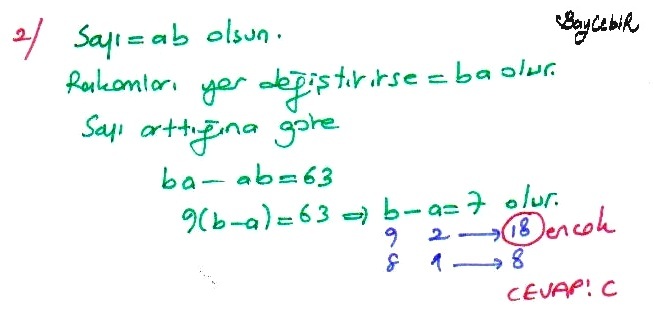 BAYCEBİR
2/ Sayı = ab olsun.
Rakamları yer değiştirirse = ba olur.
Sayı arttığına göre
ba - ab = 63
9(b-a) = 63 ⇒ b-a = 7 olur.
9 2 → 18 en çok
8 1 → 8
CEVAP: C